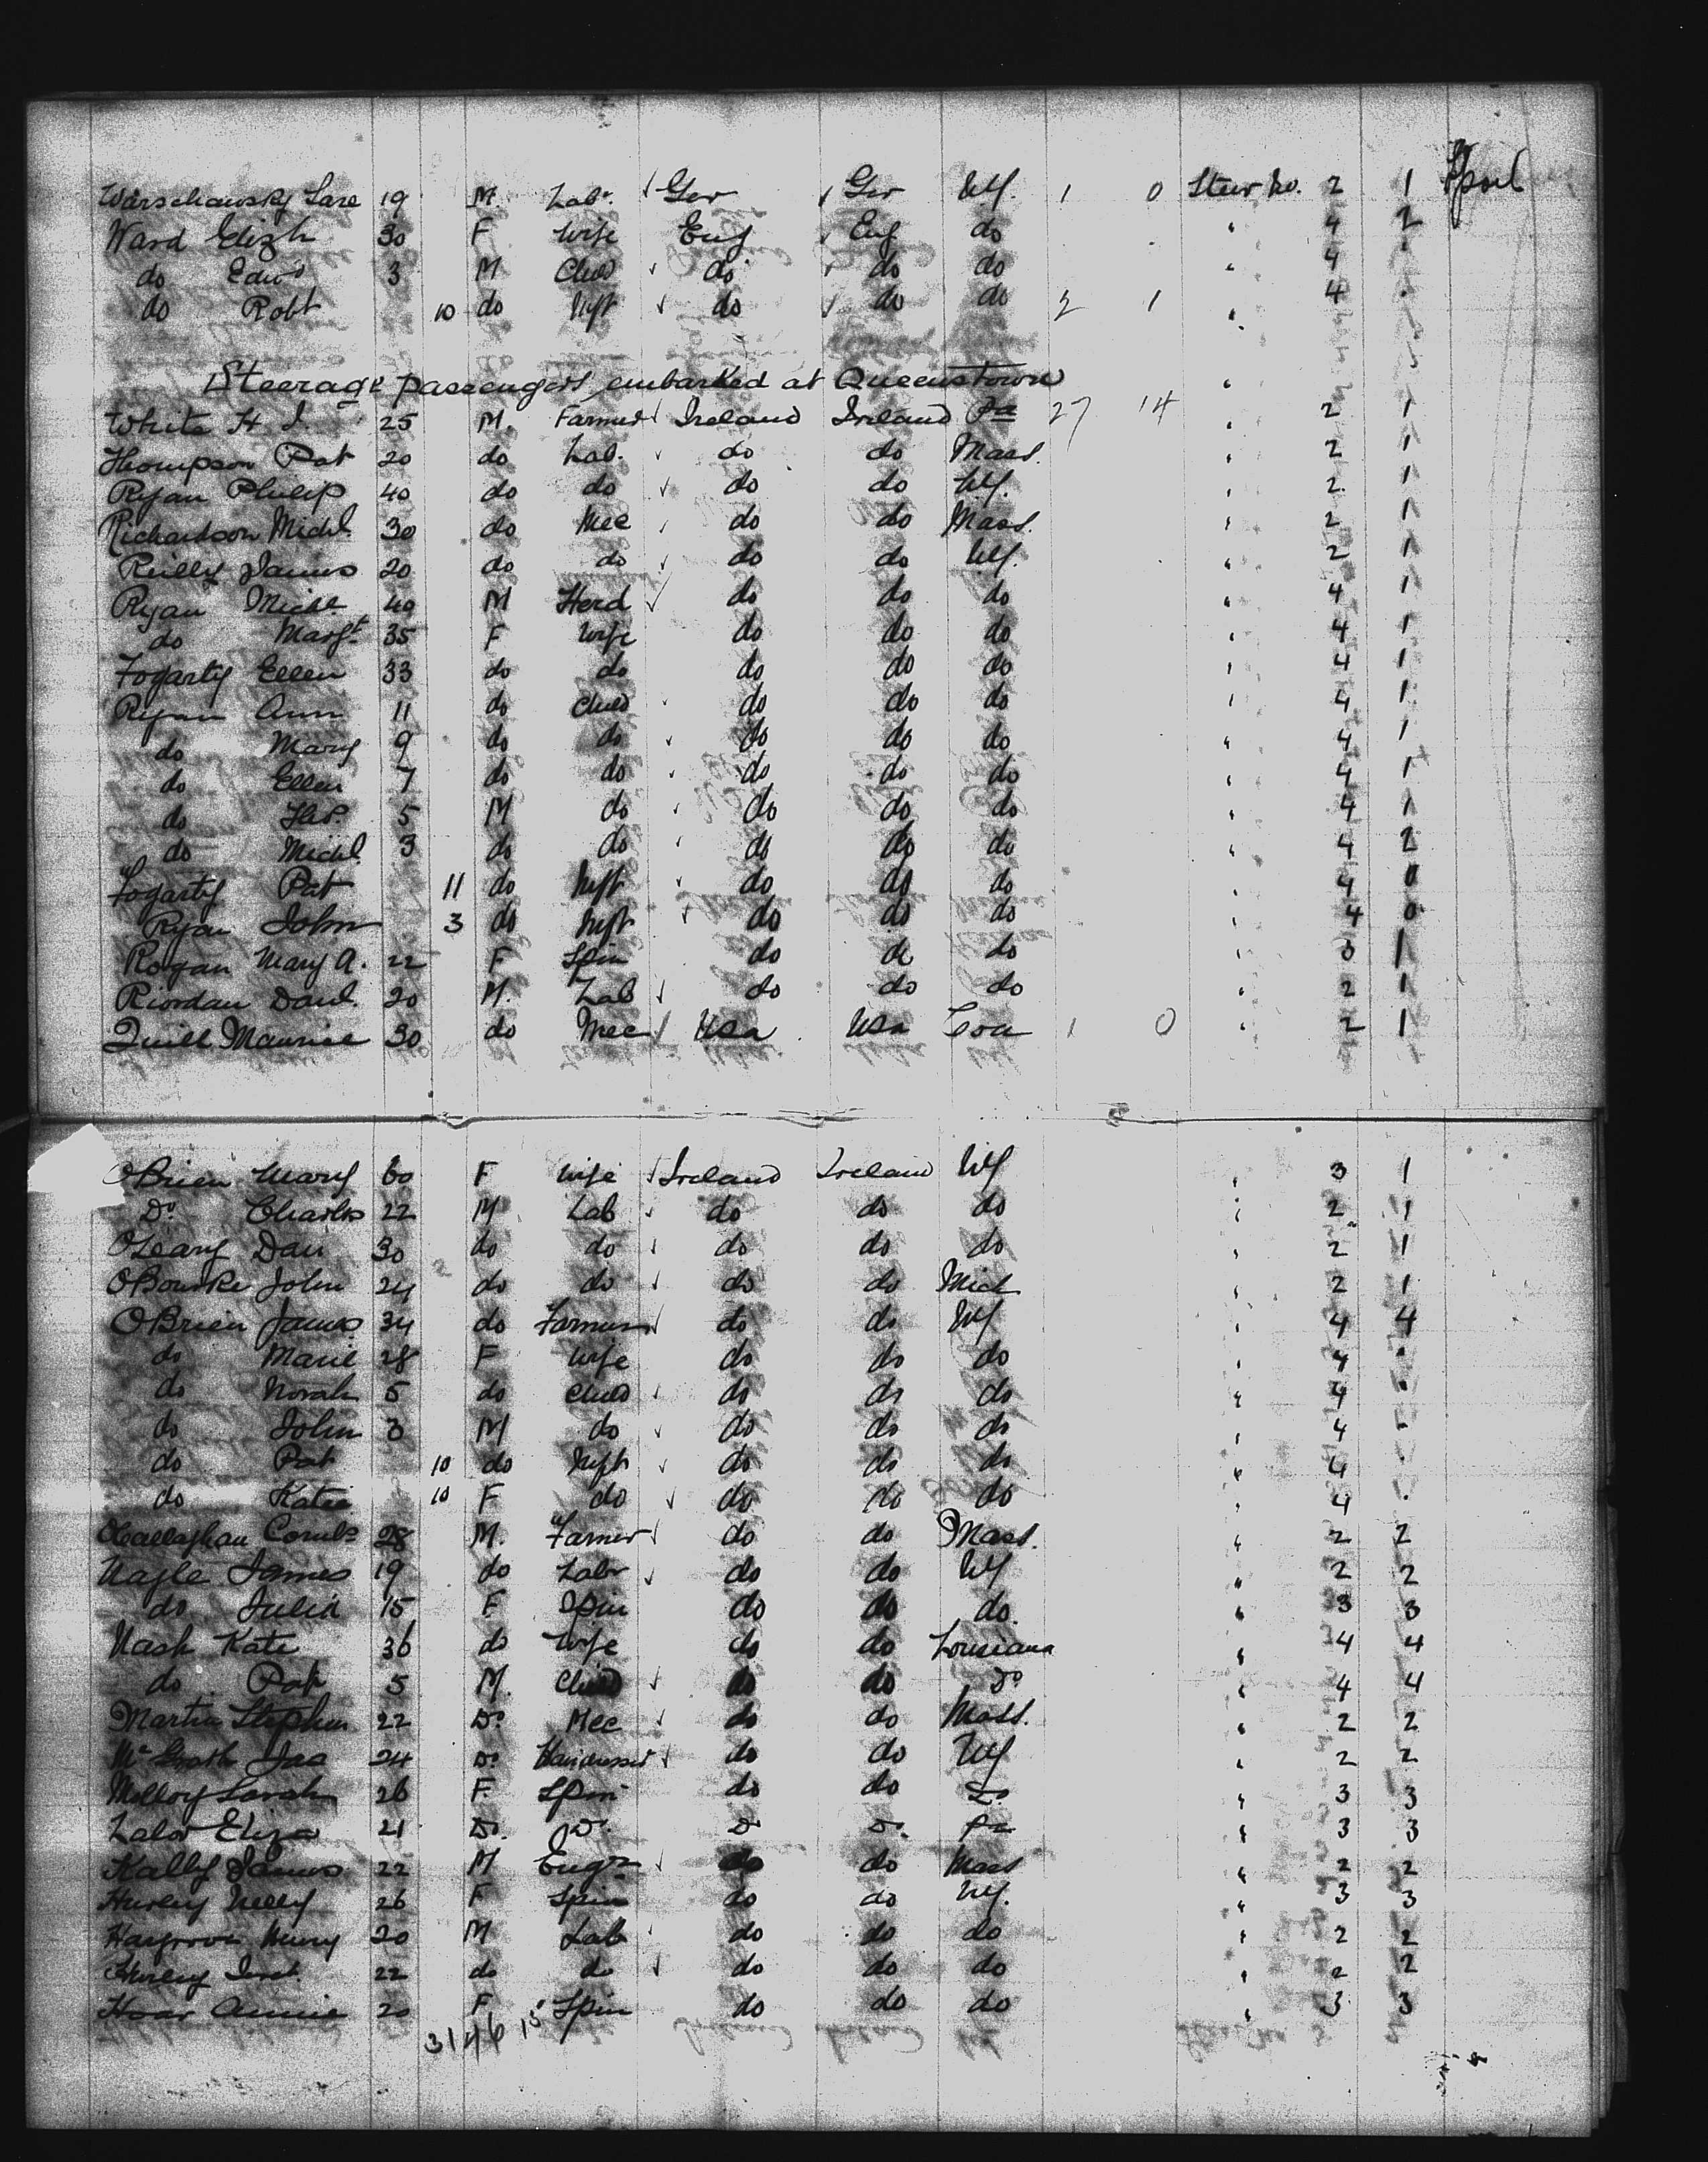 Warschawsky Sare 19 M Labr. Ger Ger NY. 1 0 Steer No. 2 1
Ward Elizth 30 F Wife Eng Eng do " 4 2
do Edwd 3 M Child do do do " 4 "
do Robt 10 do Inft do do do 2 1 " 4 "
Steerage passengers embarked at Queenstown "
White H J. 25 M. Farmer Ireland Ireland Pa 27 14 2 1
Thompson Pat 20 do Lab. do do Mass. " 2 1
Ryan Philip 40 do do do do NY. " 2 1
Richardson Michl. 30 do Mec do do Mass. " 2 1
Reilly James 20 do do do do NY. " 2 1
Ryan Michl 40 M Herd do do do " 4 1
do Margt 35 F Wife do do do " 4 1
Fogarty Ellen 33 do do do do do " 4 1
Ryan Ann 11 do Child do do do " 4 1
do Mary 9 do do do do do " 4 1
do Ellen 7 do do do do do " 4 1
do Thos. 5 M do do do do " 4 1
do Michl. 3 do do do do do " 4 2
Fogarty Pat 11 do Inft do do do " 4 0
Ryan John 3 do Inft do do do " 4 0
Rogan Mary A. 22 F Spin do do do " 3 1
Riordan Danl. 20 M. Lab do do do " 2 1
Quill Maurice 30 do Mec Usa Usa 1 0 " 2 1
OBrien Mary 60 F Wife Ireland Ireland NY " 3 1
Do Charles 22 M Lab do do do " 2 1
OLeary Dan 30 do do do do do " 2 1
ORourke John 24 do do do do Mich " 2 1
OBrien James 34 do Farmer do do NY " 4 4
do Marie 28 F Wife do do do " 4 "
do Norah 5 do Child do do do " 4 "
do John 3 M do do do do " 4 "
do Pat 10 do Inft do do do " 4 "
do Katie 10 F do do do do " 4 "
OCallaghan Corns 28 M. Farmer do do Mass. " 2 2
Nagle James 19 do Labr do do NY " 2 2
do Julia 15 F Spin do do do. " 3 3
Nash Kate 36 do Wife do do Lousiana " 4 4
do Pat 5 M. Child do do Do " 4 4
Martin Stephen 22 Do Mec do do Mass. " 2 2
McGrath Jas 24 Do do do NY " 2 2
Molloy Sarah 26 F. Spin do do Do " 3 3
Lalor Eliza 21 Do. Do. Do Do. Pa " 3 3
Kally James 22 M Engr do do Mass " 2 2
Hurley Nelly 26 F Spin do do NY. " 3 3
Hargrove Henry 20 M Lab do do do " 2 2
Hurley 22 do do do do do " 2 2
Hoar Annie 20 F Spin do do do " 3 3
31 46 15